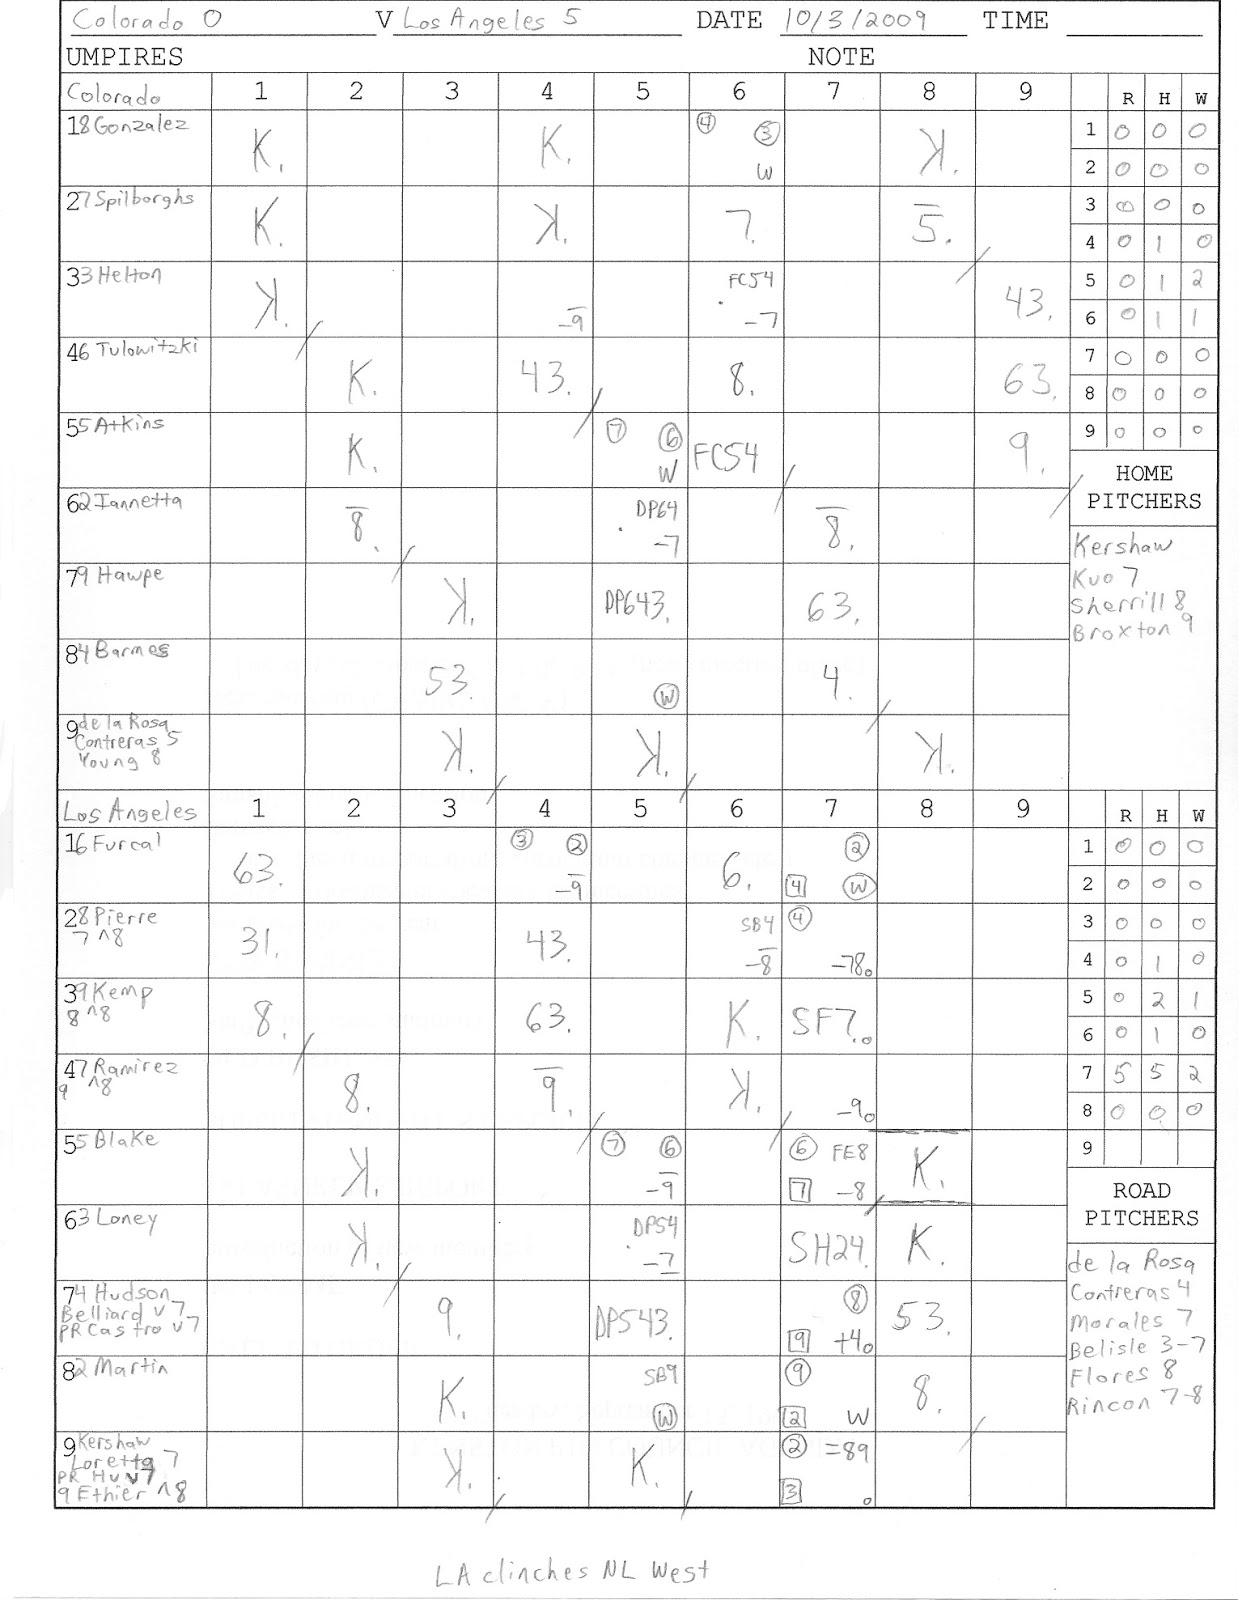 Colorado 0 V Los Angeles 5 DATE 10/3/2009 TIME
UMPIRES NOTE
Colorado 1 2 3 4 5 6 7 8 9 R H W
18 Gonzalez K. K. ④ ③ W K.
1 0 0 0
2 0 0 0
27 Spilborghs K. K. 7. 5.
3 0 0 0
4 0 1 0
33 Helton K. -9 FC54 . -7 43.
5 0 1 2
6 0 1 1
46 Tulowitzki K. 43. 8. 63.
7 0 0 0
8 0 0 0
55 Atkins K. ⑦ ⑥ W FC54 9.
9 0 0 0
HOME
PITCHERS
62 Iannetta 8. DP64 . -7 8.
Kershaw
Kuo 7
Sherrill 8
Broxton 9
79 Hawpe K. DP643. 63.
84 Barmes 53. W 4.
9 de la Rosa
Contreras 5
Young 8
K. K. K.
Los Angeles 1 2 3 4 5 6 7 8 9 R H W
16 Furcal 63. ③ ② -9 6. ② 4 W
1 0 0 0
2 0 0 0
28 Pierre
7 ^8
31. 43. SB4 -8 ④ -78.
3 0 0 0
4 0 1 0
39 Kemp
8 ^8
8. 63. K. SF7.
5 0 2 1
6 0 1 0
47 Ramirez
9 ^8
8. 9. K. -9
7 5 5 2
8 0 0 0
55 Blake K. ⑦ ⑥ -9 ⑥ FE8 7 -8 K.
9
ROAD
PITCHERS
63 Loney K. DP54 . -7 SH24. K.
de la Rosa
Contreras 4
Morales 7
Belisle 3-7
Flores 8
Rincon 7-8
74 Hudson
Belliard v 7
PR Castro v 7
9. DP543. ⑧ 9 +4 53.
82 Martin K. SB9 W ⑨ 2 W 8.
9 Kershaw
Loretta 7
PR Hu v7
9 Ethier ^8
K. K. ② =89 3
LA clinches NL West